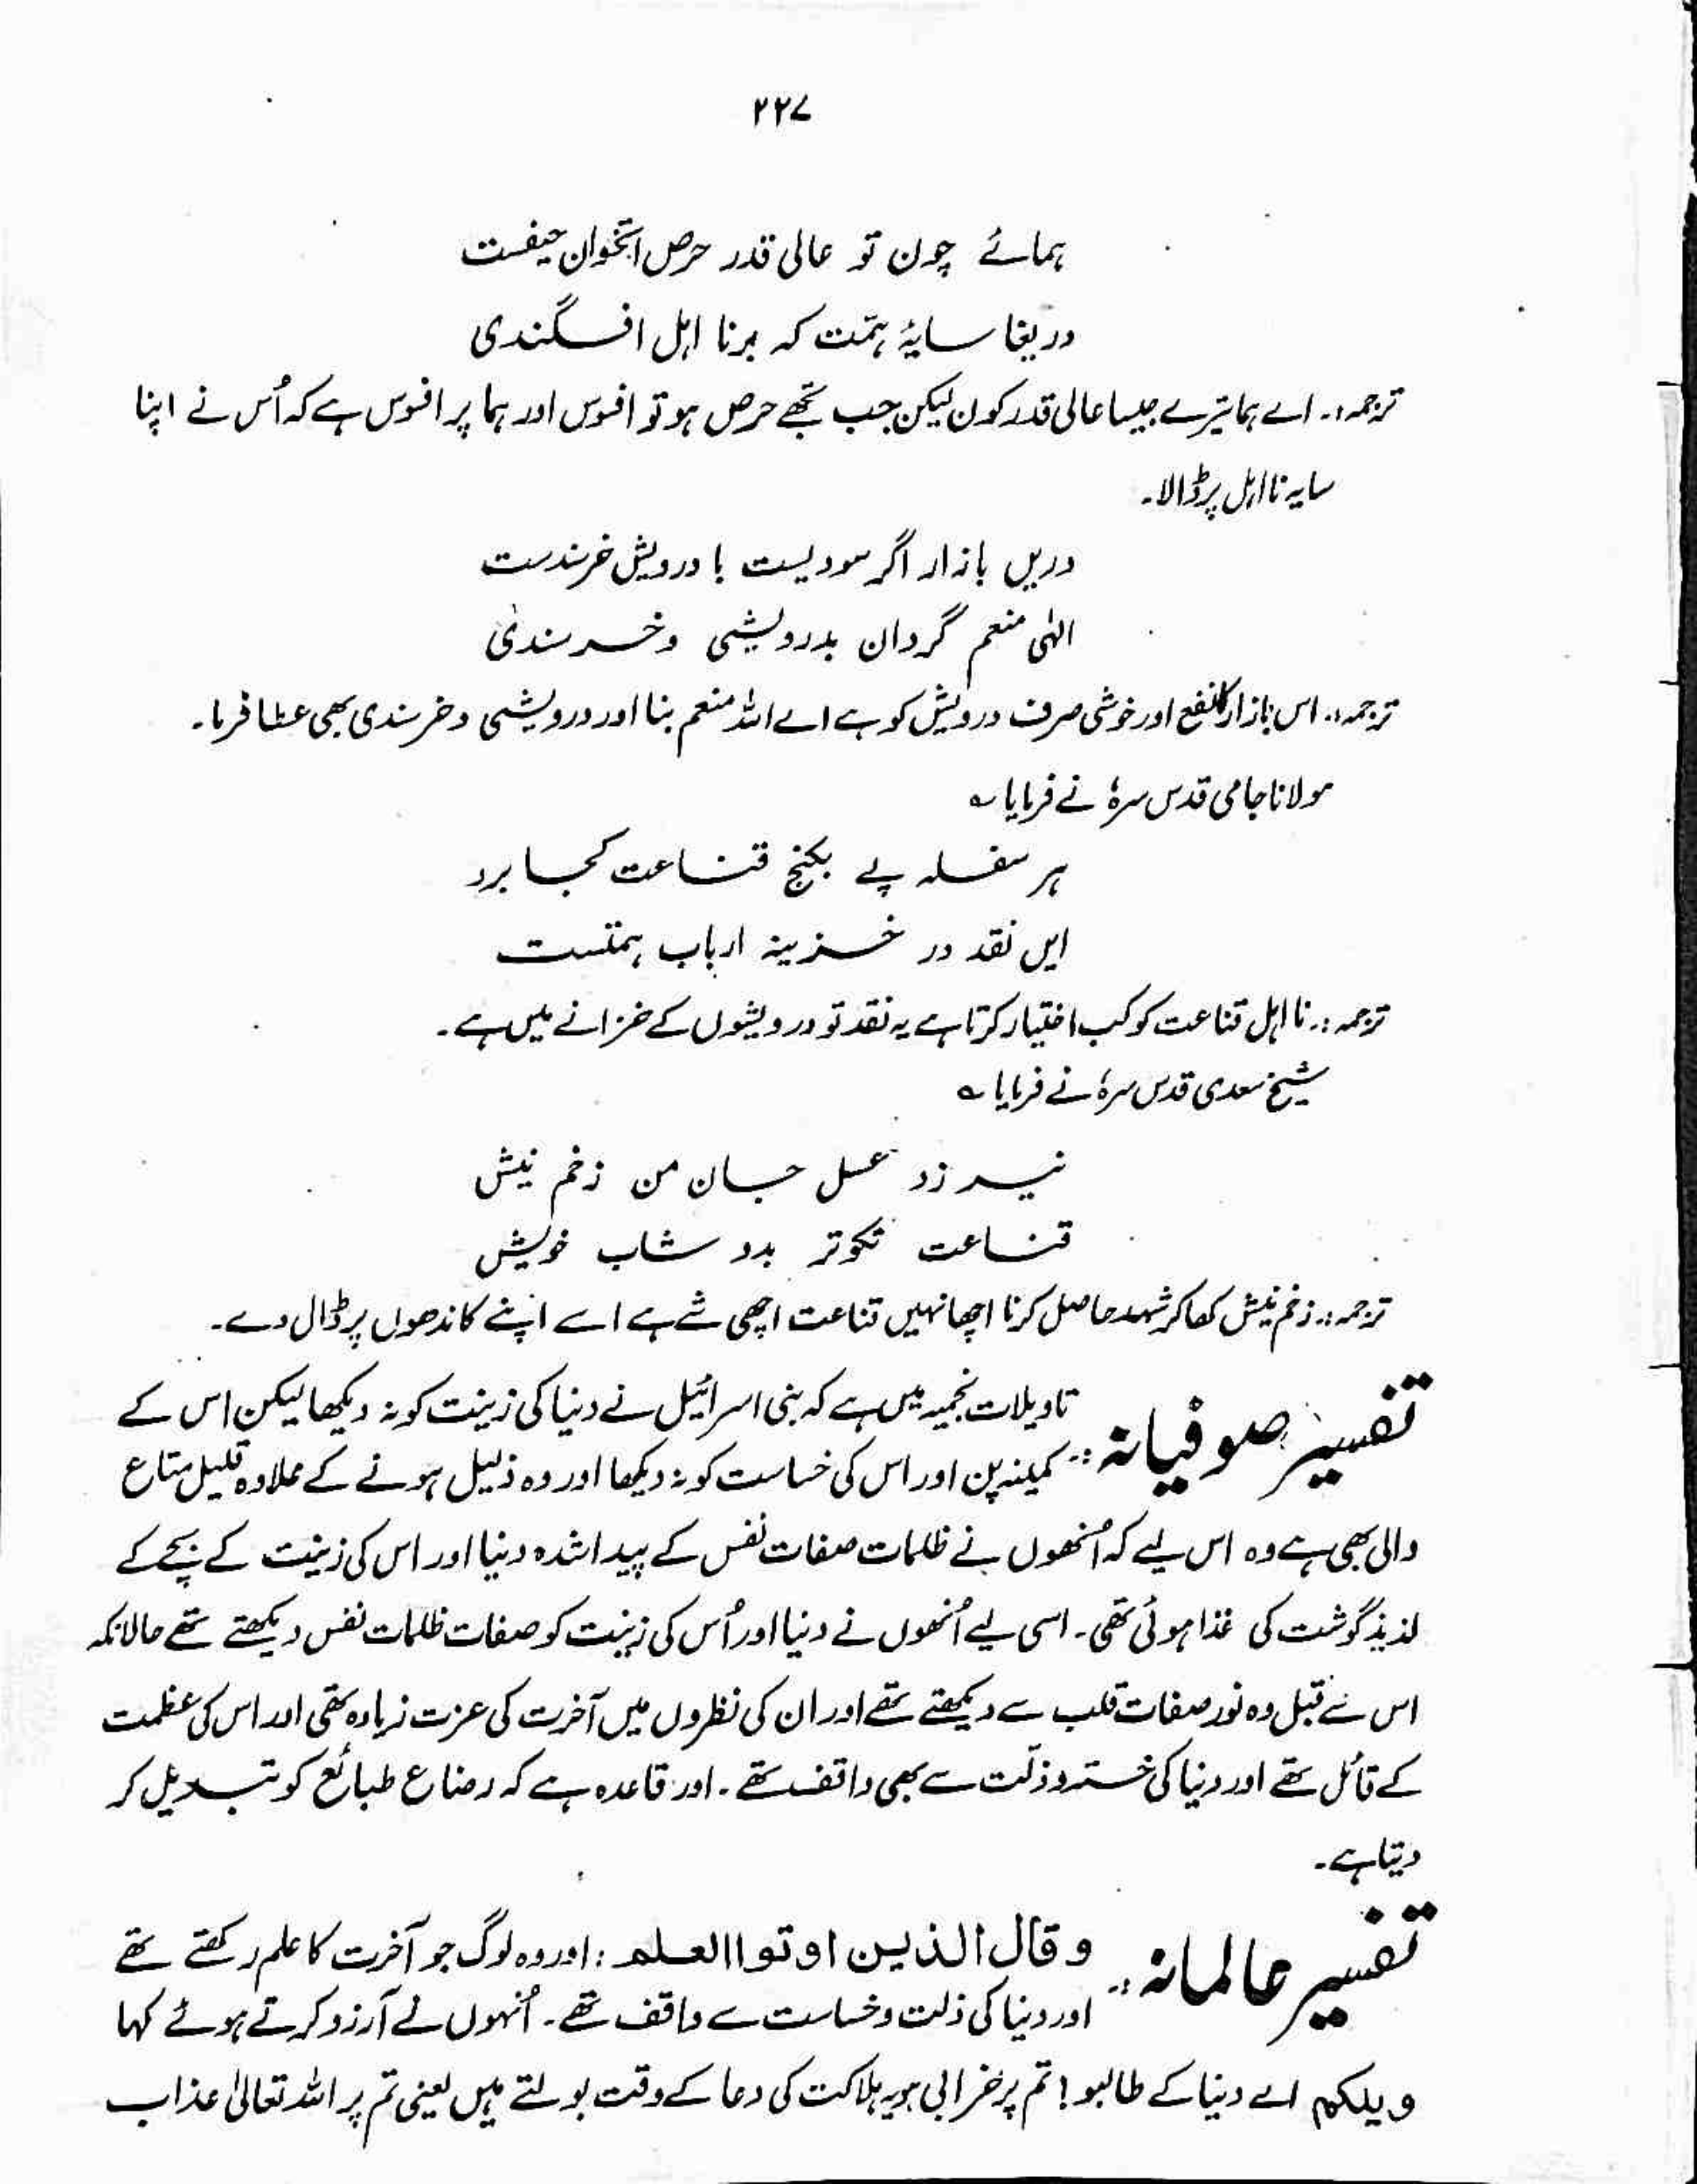 ۲۲۷
ہمائے چون تو عالی قدر حرص استخوان حیفست
دریغا سایۂ ہمّت کہ برنا اہل افگندی
ترجمہ:۔ اے ہما تیرے جیسا عالی قدر کون لیکن جب تجھے حرص ہو تو افسوس اور ہما پر افسوس ہے کہ اُس نے اپنا
سایہ نا اہل پر ڈالا۔
دریں بازار اگر سودیست با درویش خرسندست
الٰہی منعم گردان بدرویشی و خرسندی
ترجمہ:۔ اس بازار کا نفع اور خوشی صرف درویش کو ہے اے اللہ منعم بنا اور درویشی و خرسندی بھی عطا فرما۔
مولانا جامی قدس سرہٗ نے فرمایا ؎
ہر سفلہ پے بکنج قناعت کجا برد
ایں نقد در خزینہ ارباب ہمتست
ترجمہ:۔ نا اہل قناعت کو کب اختیار کرتا ہے یہ نقد تو درویشوں کے خزانے میں ہے۔
شیخ سعدی قدس سرہٗ نے فرمایا ؎
نیرزد عسل جان من زخم نیش
قناعت نکوتر بدوشاب خویش
ترجمہ:۔ زخم نیش کھا کر شہد حاصل کرنا اچھا نہیں قناعت اچھی شے ہے اسے اپنے کاندھوں پر ڈال دے۔
تفسیر صوفیانہ:۔ تاویلات نجمیہ میں ہے کہ بنی اسرائیل نے دنیا کی زینت کو نہ دیکھا لیکن اس کے
کمینہ پن اور اس کی خساست کو نہ دیکھا اور وہ ذلیل ہونے کے علاوہ قلیل متاع
والی بھی ہے وہ اس لیے کہ اُنھوں نے ظلمات صفات نفس کے پیدا شدہ دنیا اور اس کی زینت کے نیچے کے
لذیذ گوشت کی غذا ہوئی تھی۔ اسی لیے اُنھوں نے دنیا اور اُس کی زینت کو صفات ظلمات نفس دیکھتے تھے حالانکہ
اس سے قبل وہ نور صفات قلب سے دیکھتے تھے اور ان کی نظروں میں آخرت کی عزت زیادہ تھی اور اس کی عظمت
کے قائل تھے اور دنیا کی خستہ و ذلّت سے بھی واقف تھے۔ اور قاعدہ ہے کہ رضاع طبائع کو تبدیل کر
دیتا ہے۔
تفسیر عالمانہ:۔ وقال الذین اوتوا العلم: اور وہ لوگ جو آخرت کا علم رکھتے تھے
اور دنیا کی ذلت و خساست سے واقف تھے۔ اُنہوں نے آرزو کرتے ہوئے کہا
ویلکم اے دنیا کے طالبو! تم پر خرابی ہو یہ ہلاکت کی دعا کے وقت بولتے ہیں یعنی تم پر اللہ تعالیٰ عذاب